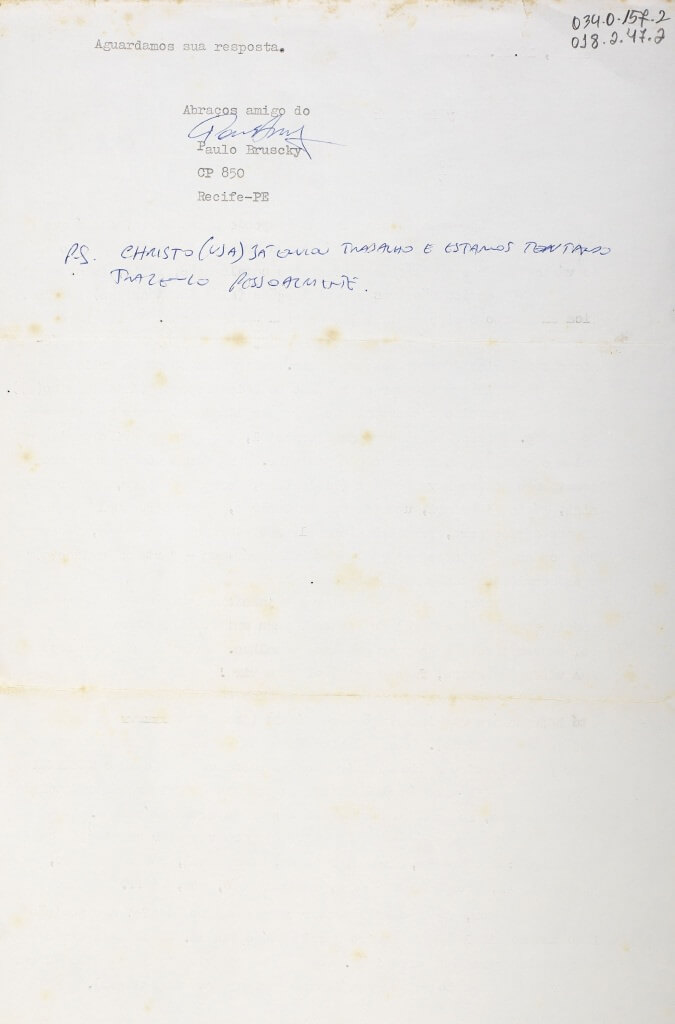 034.0.157.2
018.2.47.2
Aguardamos sua resposta.
Abraços amigo do
Paulo Bruscky
CP 850
Recife-PE
P.S. CHRISTO (USA) JÁ ENVIOU TRABALHO E ESTAMOS TENTANDO
TRAZE-LO PESSOALMENTE.